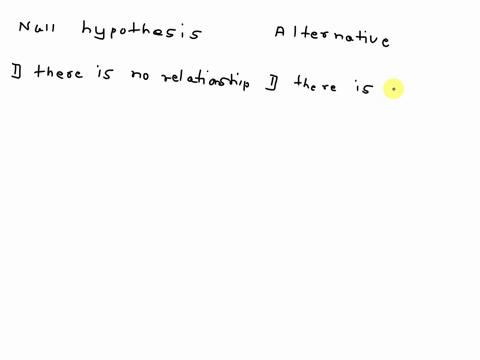 Null hypothesis Alternative
1) there is no relationship 1) there is